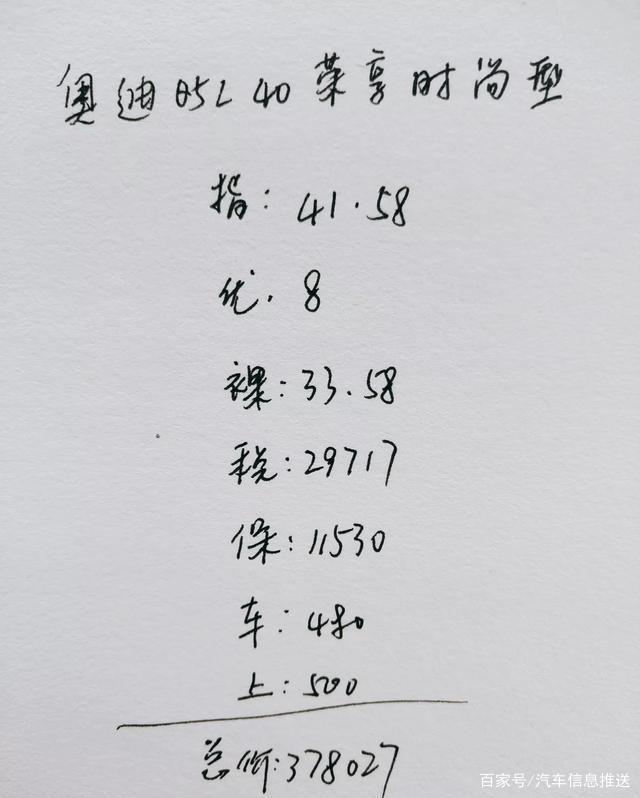 奥迪A5L 40荣享时尚型
指：41.58
优．8
裸：33.58
税：29717
保：11530
车：480
上：500
总价：378027
百家号/汽车信息推送